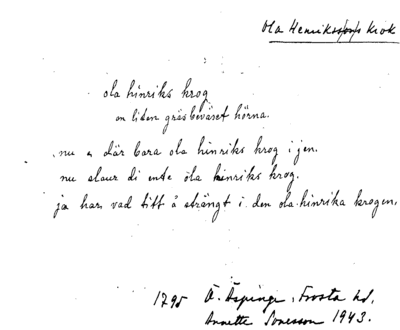 Ola Henrikssons Krok
ola hinriks krog
en liden gräsbeväxet hörna.
nu e där bara ola hinriks krog i jen.
nu slaur di ente ola hinriks krog.
ja har vad titt å strängt i den ola hinriks krogen.
1795 Ö. Äspinge, Frosta hd,
Annette Jonesson 1943.